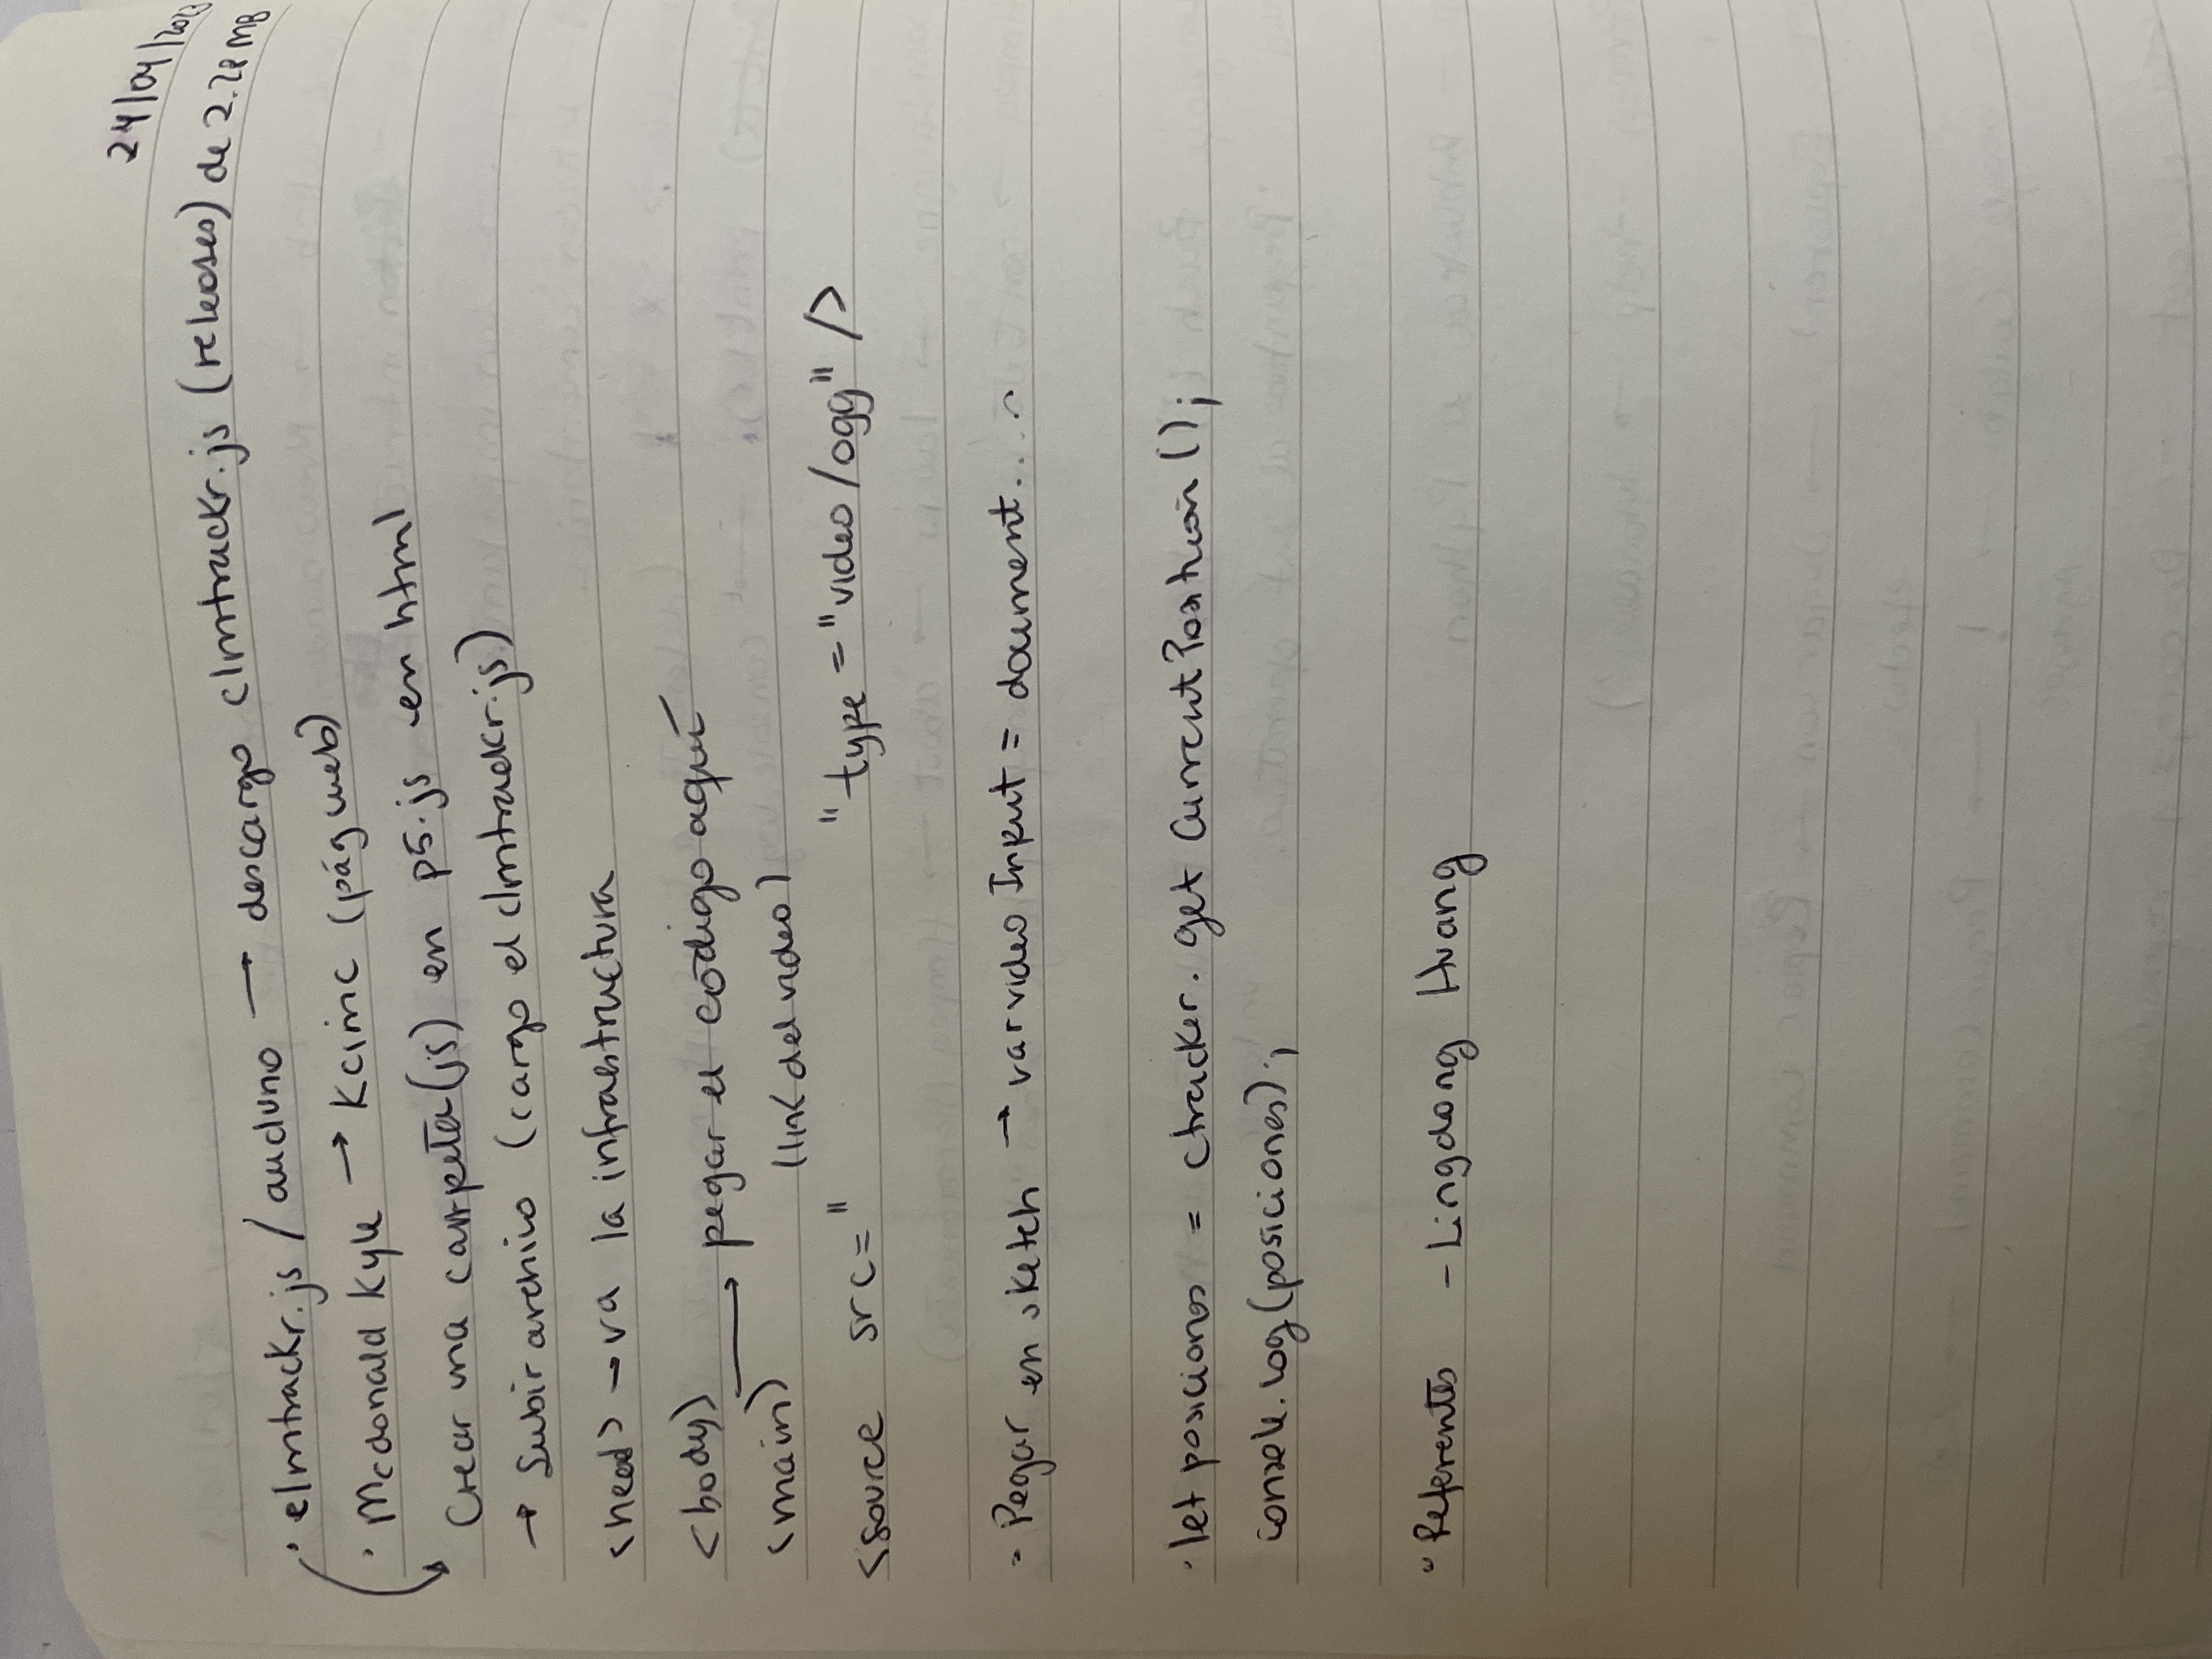 24/04/2023
· elmtrackr.js / auduno → descargo clmtrackr.js (releases) de 2.28 MB
· Mcdonald Kyle → Kcimc (pág web)
Crear una carpeta (js) en p5.js en html
→ Subir archivo (cargo el clmtrackr.js)
<head> → va la infraestructura
<body>
→ pegar el código aquí
<main>
(link del video)
<source src=" " type = "video/ogg" />
- Pegar en sketch → var video Input = document....
· let posiciones = ctracker. get CurrentPosition ();
console.log(posiciones);
· Referentes - Lingdong Huang